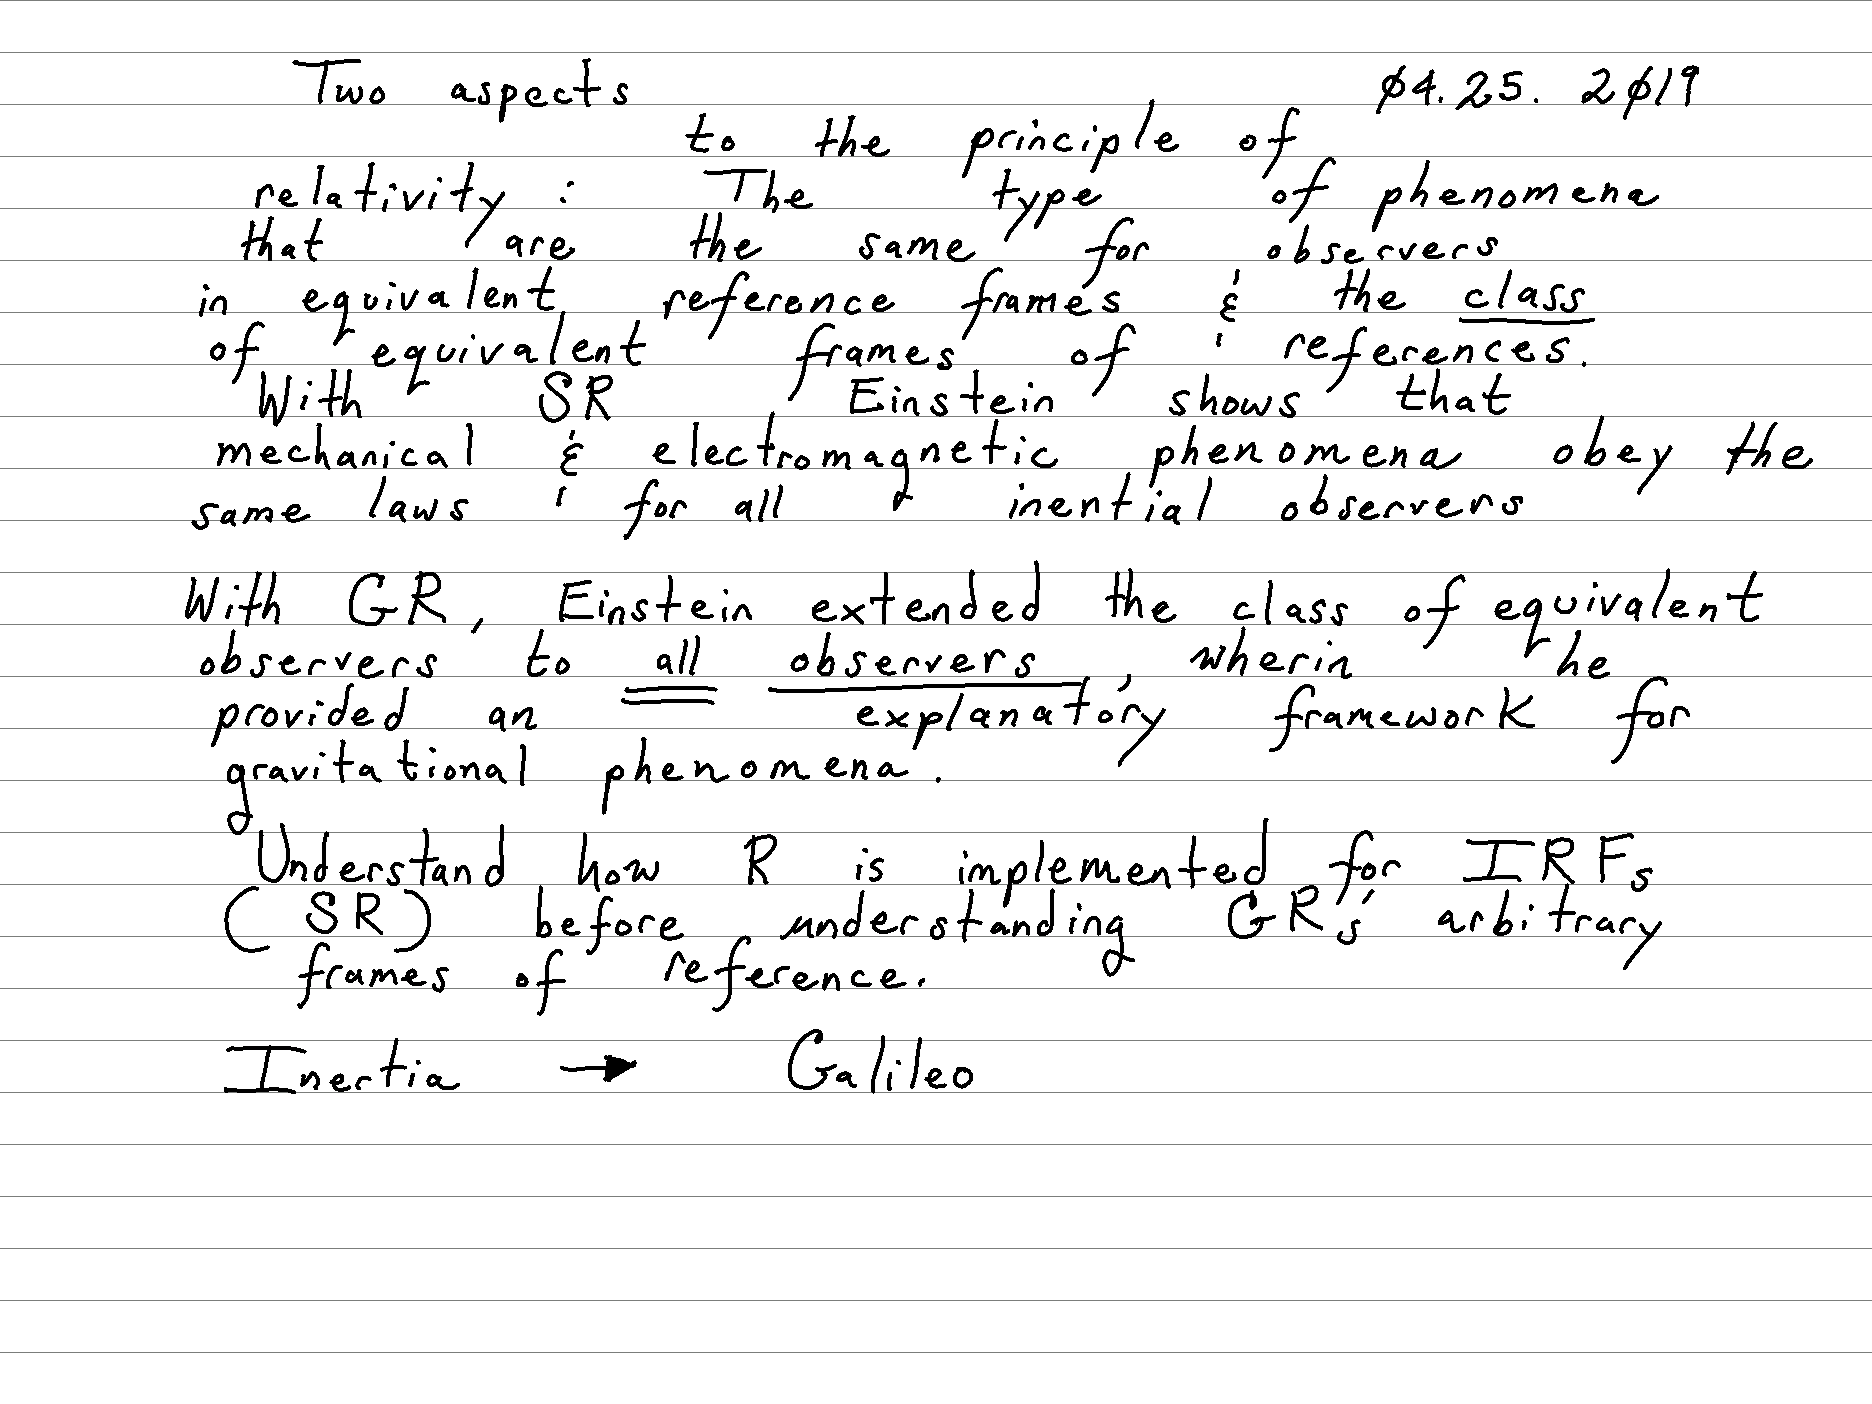 Two aspects 04.25.2019
to the principle of
relativity : The type of phenomena
that are the same for observers
in equivalent reference frames & the class
of equivalent frames of references.
With SR Einstein shows that
mechanical & electromagnetic phenomena obey the
same laws for all inential observers
With GR, Einstein extended the class of equivalent
observers to all observers, wherin he
provided an explanatory framework for
gravitational phenomena.
Understand how R is implemented for IRFs
(SR) before understanding GR's arbitrary
frames of reference.
Inertia → Galileo